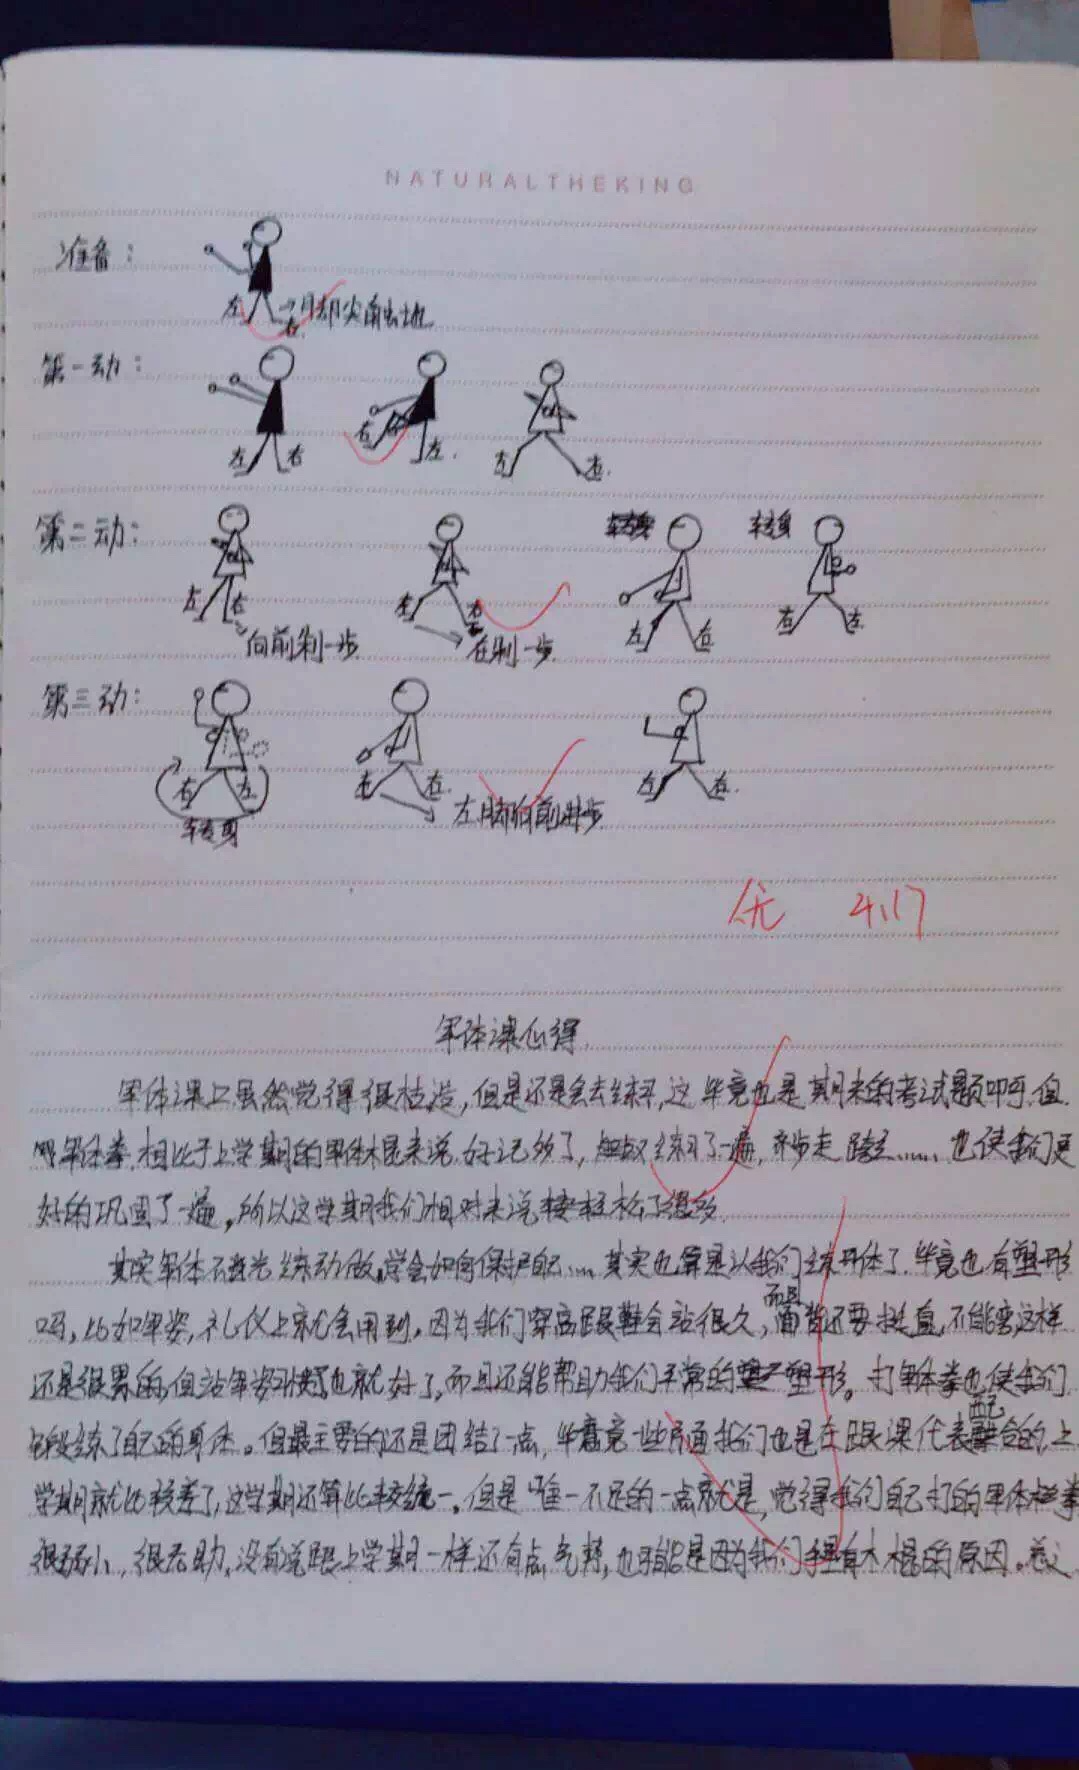 NATURALTHEKING
准备：
左 右 脚尖前点地
第一动：
左 右 右 左. 左. 右.
第二动： 转身 转身
左 右 左 右 左 右 右 左.
向前制一步 在制一步.
第三动：
右 左 左 右. 左 右.
转身 左脚向前进步
优 4.17
军体课心得
军体课上虽然觉得很枯造,但是还是会去练习,这毕竟也是期末的考试题叩乎.但
军体拳.相比于上学期的军体棍来说.好记多了,练习了一遍,齐步走 跨立......也使我们更
好的巩固了一遍,所以这学期我们相对来说轻松了很多.
其实军体不光练动做,学会如何保护自己....其实也算是以我们练形体了.毕竟也有塑形
吗,比如军姿,礼仪上就会用到,因为我们穿高跟鞋会站很久,而且背还要挺直,不能弯,这样
还是很累的,但站军姿习惯也就好了,而且还能帮助我们平常的塑形。打军体拳也使我们
锻练了自己的身体。但最主要的还是团结了一点,毕竟一些普通我们也是在跟课代表配合的,上
学期就比较差了,这学期还算比较统一。但是唯一不足的一点就是,觉得我们自己打的军体拳
很弱小,很无助,没有说跟上学期一样还有点气势,也可能是因为我们手里有木棍的原因。总之